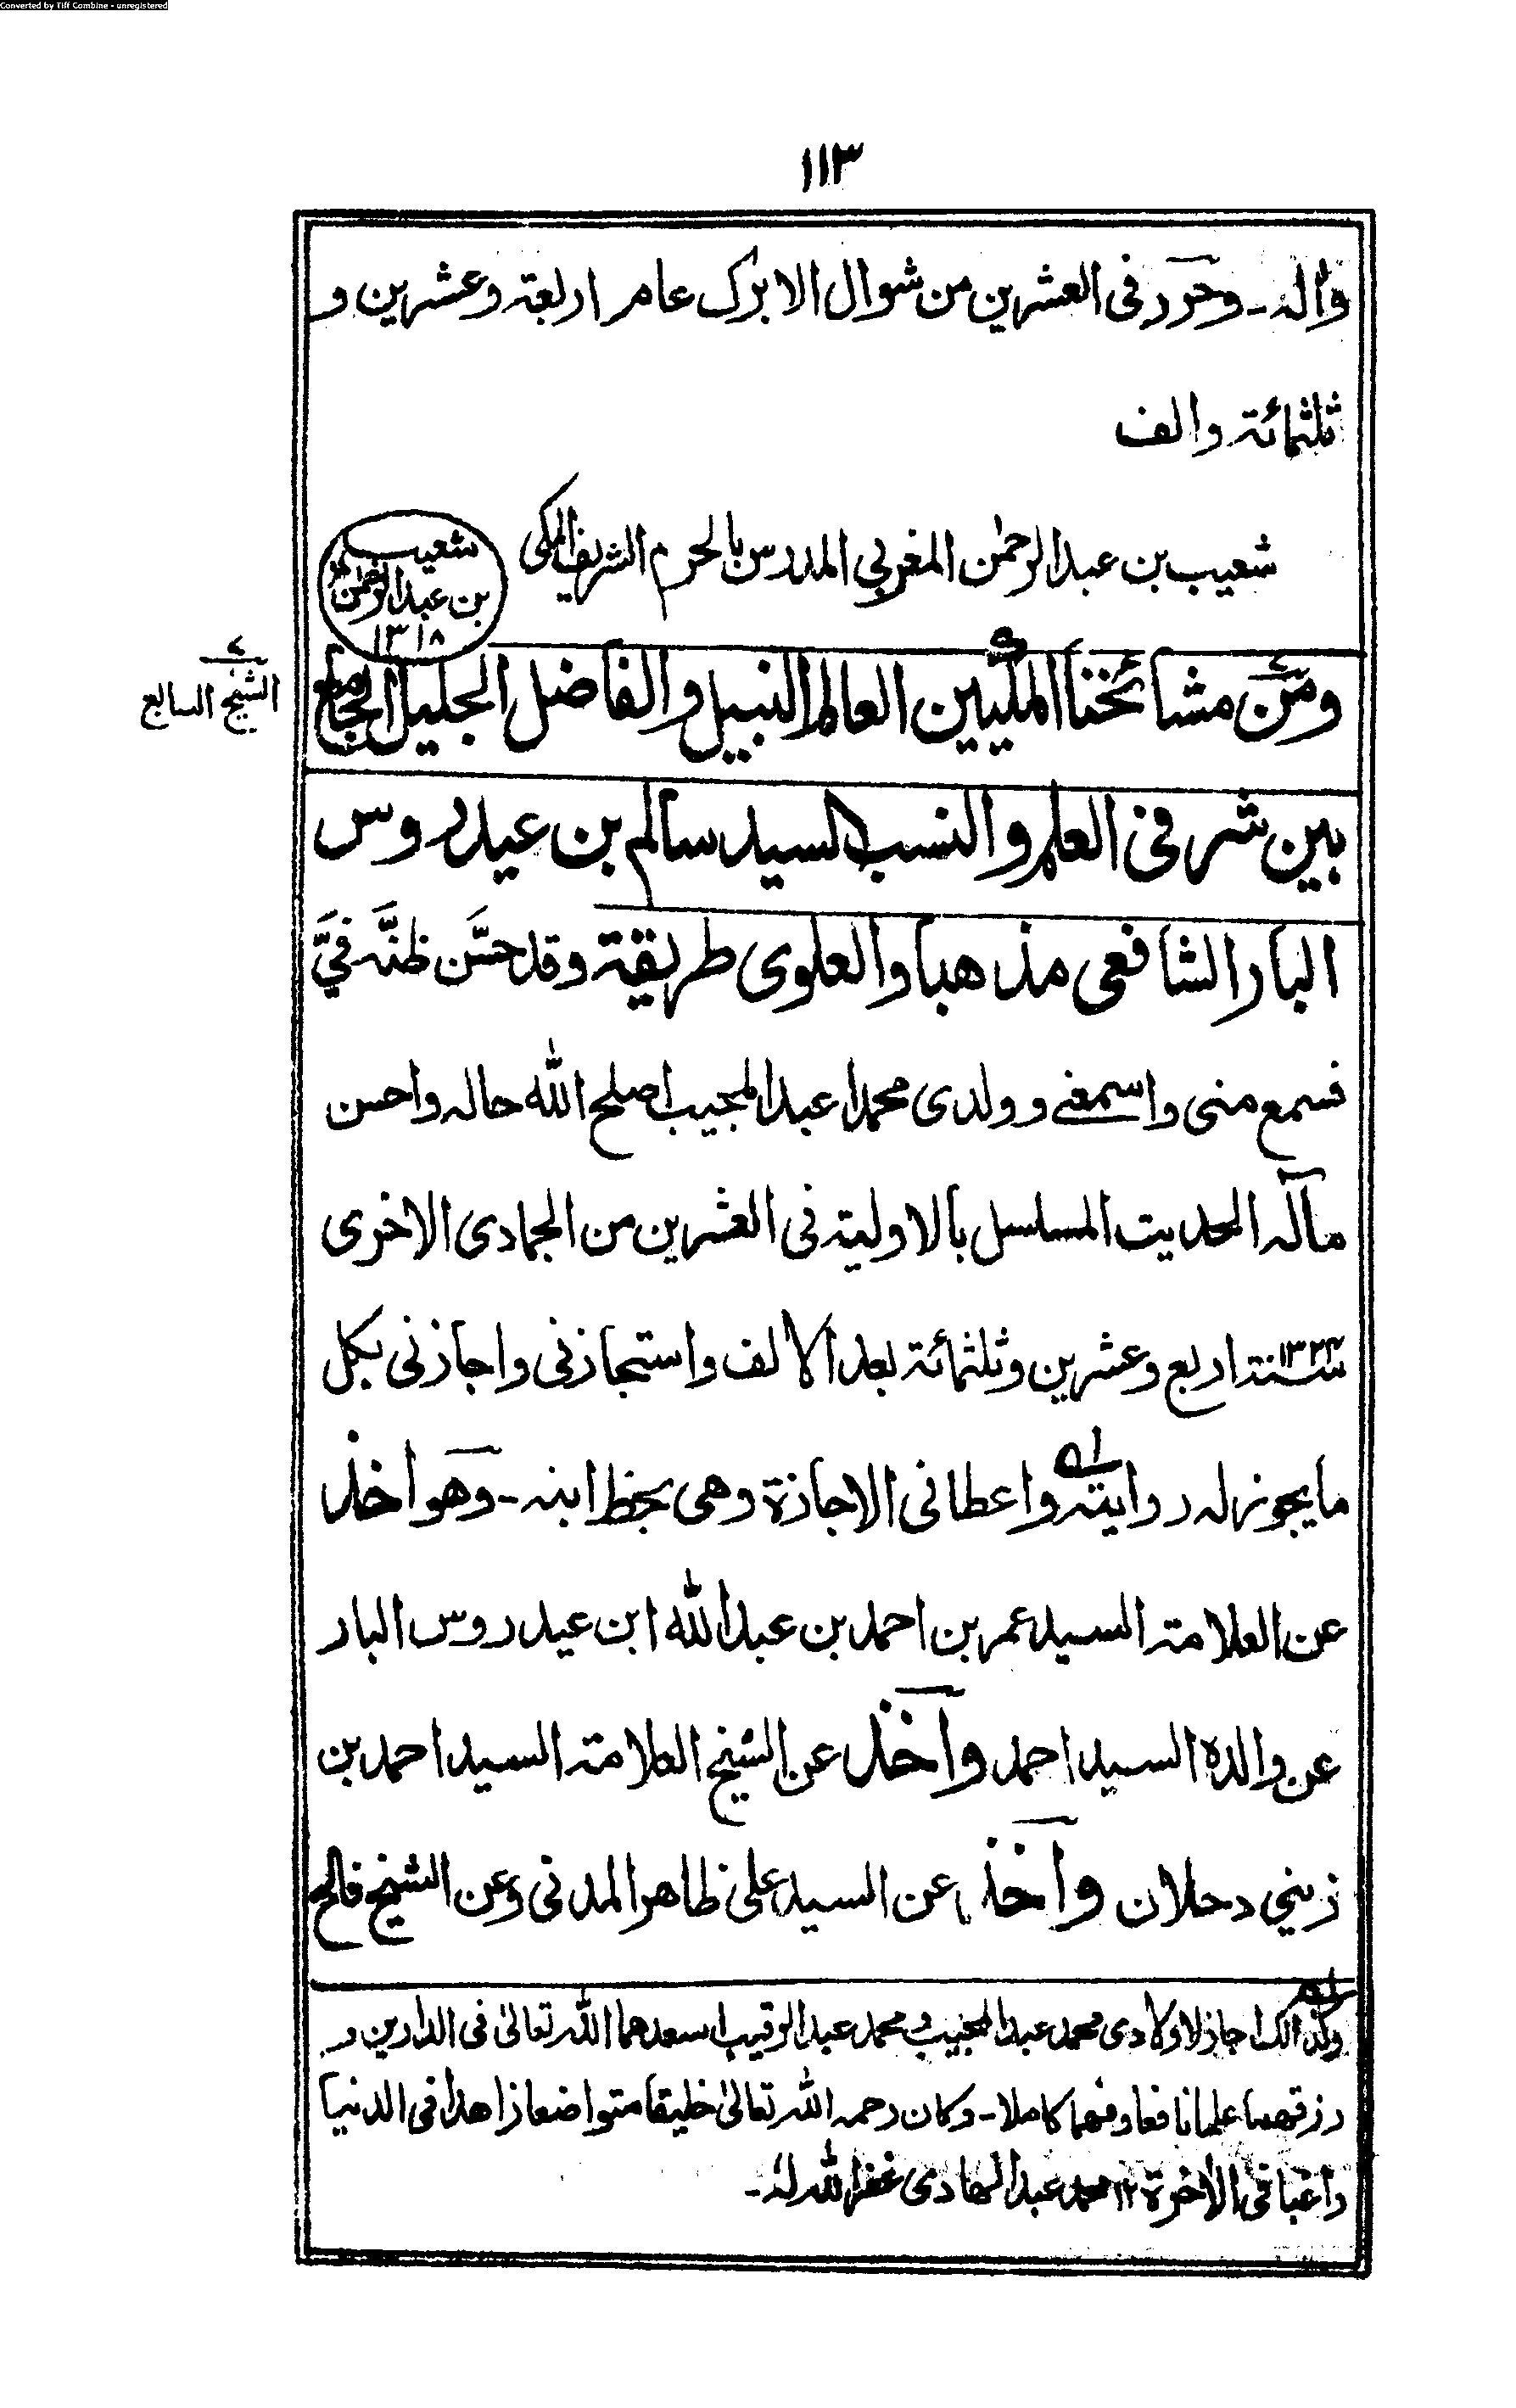 Converted by Tiff Combine - unregistered
١١٣
واٰله ـ وحرر فى العشرين من شوال الابرك عام اربعة وعشرين و
ثلثمائة والف
شعيب بن عبد الرحمٰن المغربي المدرس بالحرم الشريف المكى
شعيب
بن عبد الرحمٰن
١٣١٨
ومن مشائخنا المكيين العالم النبيل والفاضل الجليل الجامع
٧
الشيخ السابع
بين شرفى العلم والنسب السيد سالم بن عيدروس
البار الشافعى مذهبا والعلوى طريقة وقد حسَّن ظنَّه فيَّ
فسمع منى واسمعنے وولدى محمدا عبد المجيب اصلح الله حاله واحسن
مآله الحديث المسلسل بالاولية فى العشرين من الجمادى الاخرى
سنة ١٣٢٤ اربع وعشرين وثلثمائة بعد الالف واستجازنى واجازنى بكل
ما يجوز له روايته واعطانى الاجازة وهى بخط ابنه ـ وهو اخذ
عن العلامة السيد عمر بن احمد بن عبد الله ابن عيدروس البار
عن والده السيد احمد واخذ عن الشيخ العلامة السيد احمد بن
زيني دحلان واخذ عن السيد على ظاهر المدنى وعن الشيخ فالح
وكذالك اجاز لاولادى محمد عبد المجيب ومحمد عبد الرقيب اسعدهما الله تعالىٰ فى الدارين و
رزقهما علما نافعا وفهما كاملا ـ وكان رحمه الله تعالىٰ خليقا متواضعا زاهدا فى الدنيا
راغبا فى الاخرة ١٢ محمد عبد الهادى غفر الله له ـ